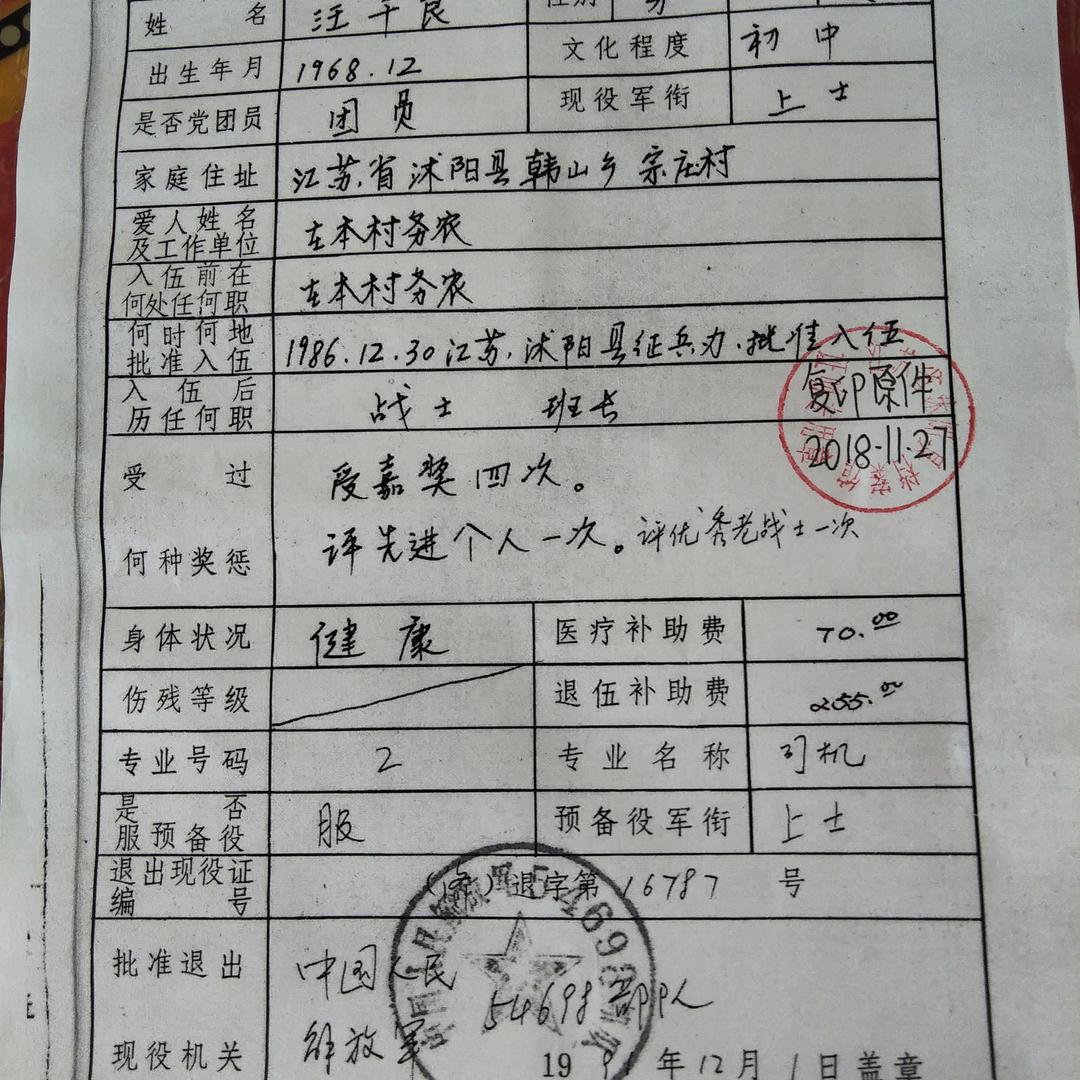 姓名 汪干良 性别
出生年月 1968.12 文化程度 初中
是否党团员 团员 现役军衔 上士
家庭住址 江苏省沭阳县韩山乡宗庄村
爱人姓名及工作单位 在本村务农
入伍前在何处任何职 在本村务农
何时何地批准入伍 1986.12.30江苏.沭阳县征兵办.批准入伍
入伍后历任何职 战士 班长
复印原件
2018-11.27
受过何种奖惩 受嘉奖四次。
评先进个人一次。评优秀老战士一次
身体状况 健康 医疗补助费 70.00
伤残等级 退伍补助费 255.00
专业号码 2 专业名称 司机
是否服预备役 服 预备役军衔 上士
退出现役证编号 退字第16787号
批准退出现役机关 中国人民解放军 54698部队
19 9 年12月1日盖章